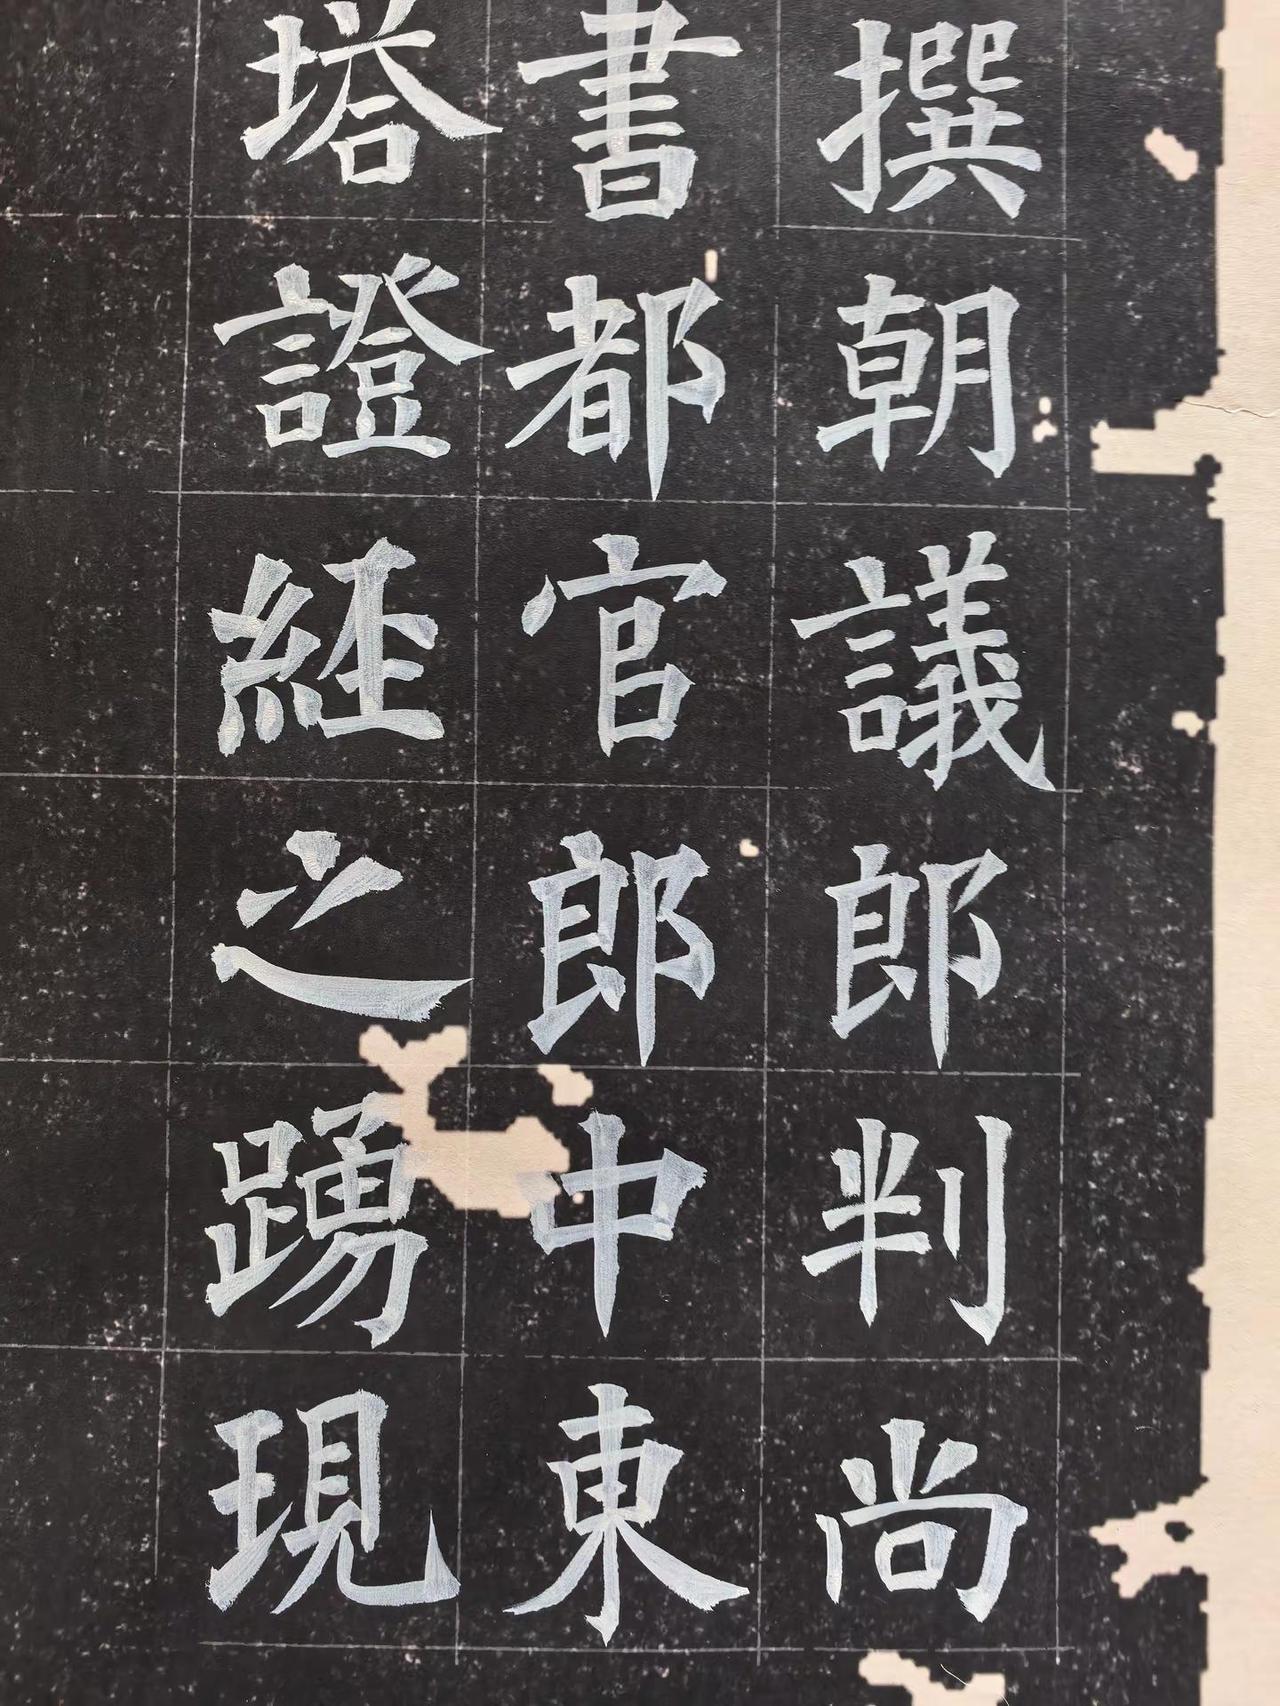 撰朝議郎判尚
書都官郎中東
塔證經之踴現